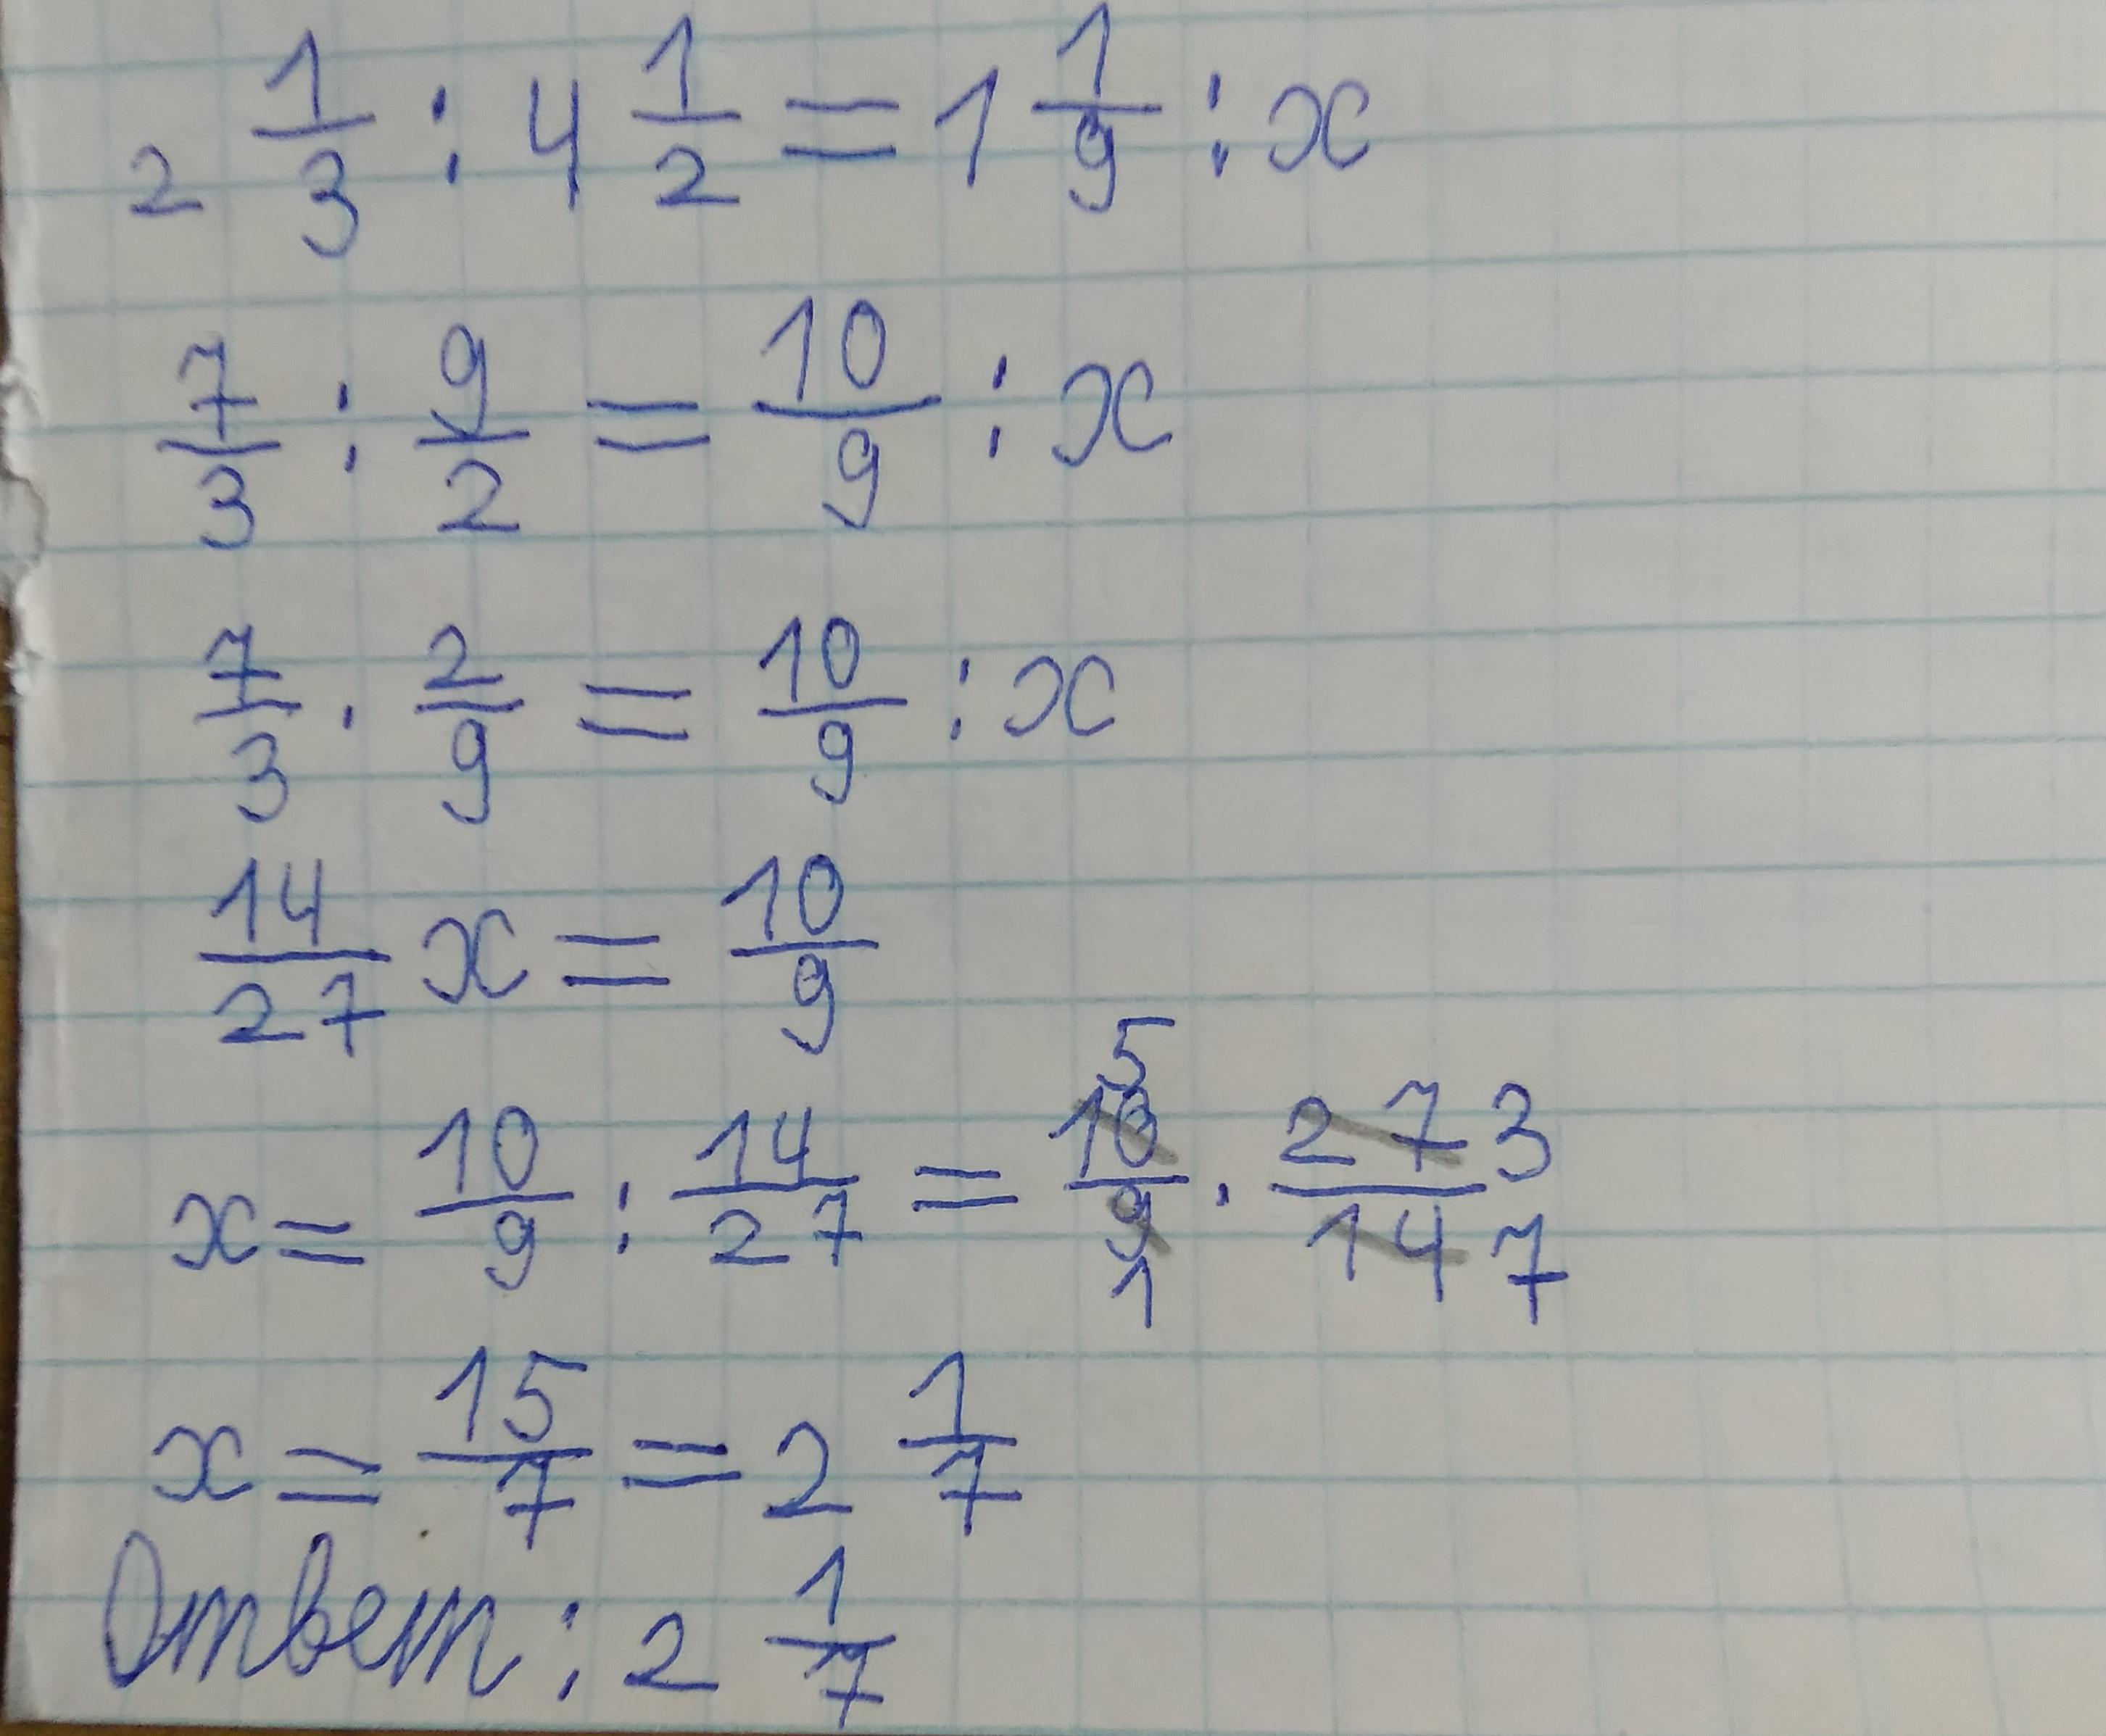 2 1/3 : 4 1/2 = 1 1/9 : x
7/3 : 9/2 = 10/9 : x
7/3 · 2/9 = 10/9 : x
14/27 x = 10/9
x = 10/9 : 14/27 = 10 5/9 1 · 27 3/14 7
x = 15/7 = 2 1/7
Ответ: 2 1/7